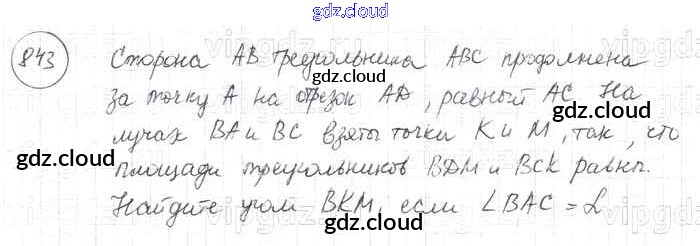 gdz.cloud
843 Сторона AB треугольника ABC продолжена
gdz.cloud
за точку A на отрезок AD, равный AC. На
gdz.cloud
лучах BA и BC взяты точки K и M, так, что
gdz.cloud
gdz.cloud
площади треугольников BDM и BCK равны.
gdz.cloud
Найдите угол BKM, если ∠BAC = α
gdz.cloud